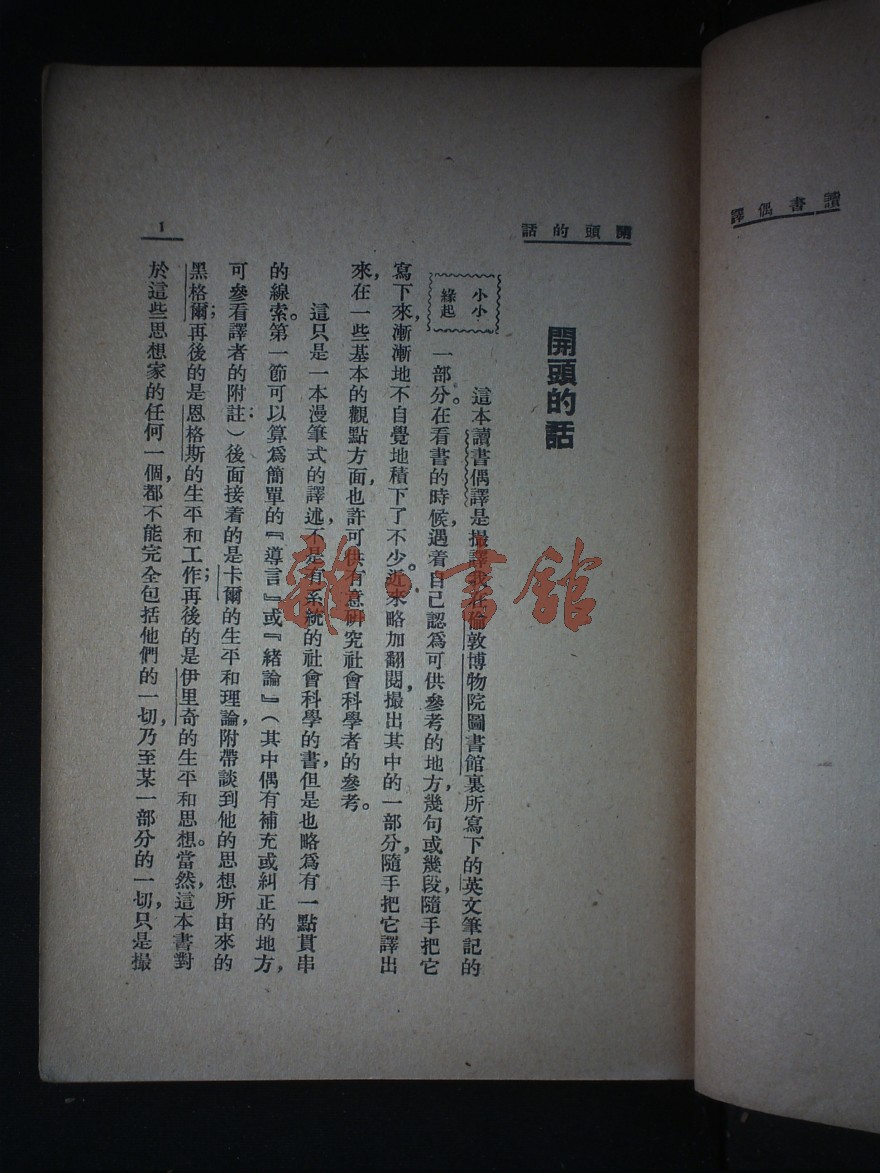 讀書偶譯
開頭的話
1
開頭的話
小小
緣起
這本讀書偶譯是撮譯我在倫敦博物院圖書館裏所寫下的英文筆記的
一部分。在看書的時候，遇着自己認爲可供參考的地方，幾句或幾段，隨手把它
寫下來，漸漸地不自覺地積下了不少。近來略加翻閱，撮出其中的一部分，隨手把它譯出
來，在一些基本的觀點方面，也許可供有意研究社會科學者的參考。
這只是一本漫筆式的譯述，不是有系統的社會科學的書，但是也略爲有一點貫串
的線索。第一節可以算爲簡單的『導言』或『緒論』（其中偶有補充或糾正的地方，
可參看譯者的附註）後面接着的是卡爾的生平和理論，附帶談到他的思想所由來的
黑格爾；再後的是恩格斯的生平和工作；再後的是伊里奇的生平和思想。當然，這本書對
於這些思想家的任何一個，都不能完全包括他們的一切，乃至某一部分的一切，只是撮
龍·書館